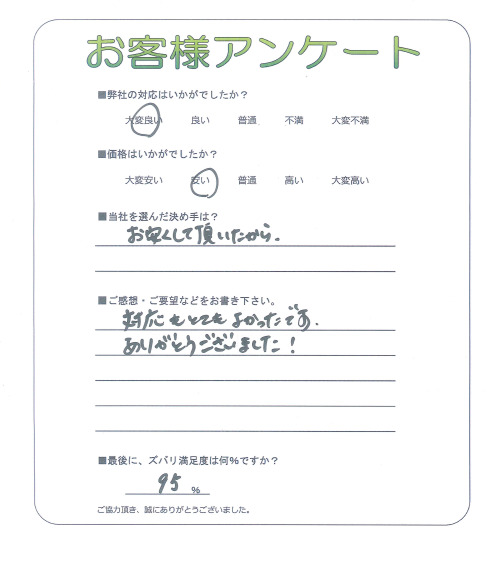 お客様アンケート
■弊社の対応はいかがでしたか？
大変良い 良い 普通 不満 大変不満
■価格はいかがでしたか？
大変安い 安い 普通 高い 大変高い
■当社を選んだ決め手は？
お安くして頂いたから.
■ご感想・ご要望などをお書き下さい。
対応もとてもよかったです.
ありがとうございました！
■最後に、ズバリ満足度は何%ですか？
95 %
ご協力頂き、誠にありがとうございました。